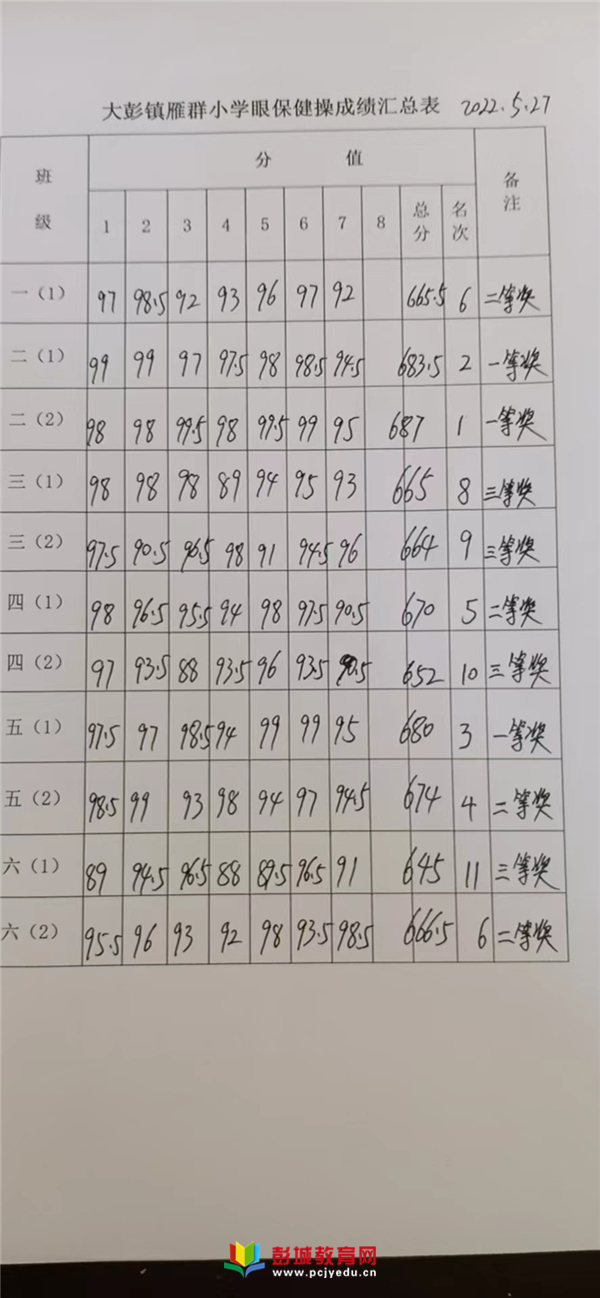 大彭镇雁群小学眼保健操成绩汇总表 2022.5.27
班级 分值 备注
1 2 3 4 5 6 7 8 总分 名次
一（1） 97 98.5 92 93 96 97 92 665.5 6 二等奖
二（1） 99 99 97 97.5 98 98.5 94.5 683.5 2 一等奖
二（2） 98 98 99.5 98 99.5 99 95 687 1 一等奖
三（1） 98 98 98 89 94 95 93 665 8 三等奖
三（2） 97.5 90.5 96.5 98 91 94.5 96 664 9 三等奖
四（1） 98 96.5 95.5 94 98 97.5 90.5 670 5 二等奖
四（2） 97 93.5 88 93.5 96 93.5 90.5 652 10 三等奖
五（1） 97.5 97 98.5 94 99 99 95 680 3 一等奖
五（2） 98.5 99 93 98 94 97 94.5 674 4 二等奖
六（1） 89 94.5 96.5 88 89.5 96.5 91 645 11 三等奖
六（2） 95.5 96 93 92 98 93.5 98.5 666.5 6 二等奖
彭城教育网
www.pcjyedu.cn